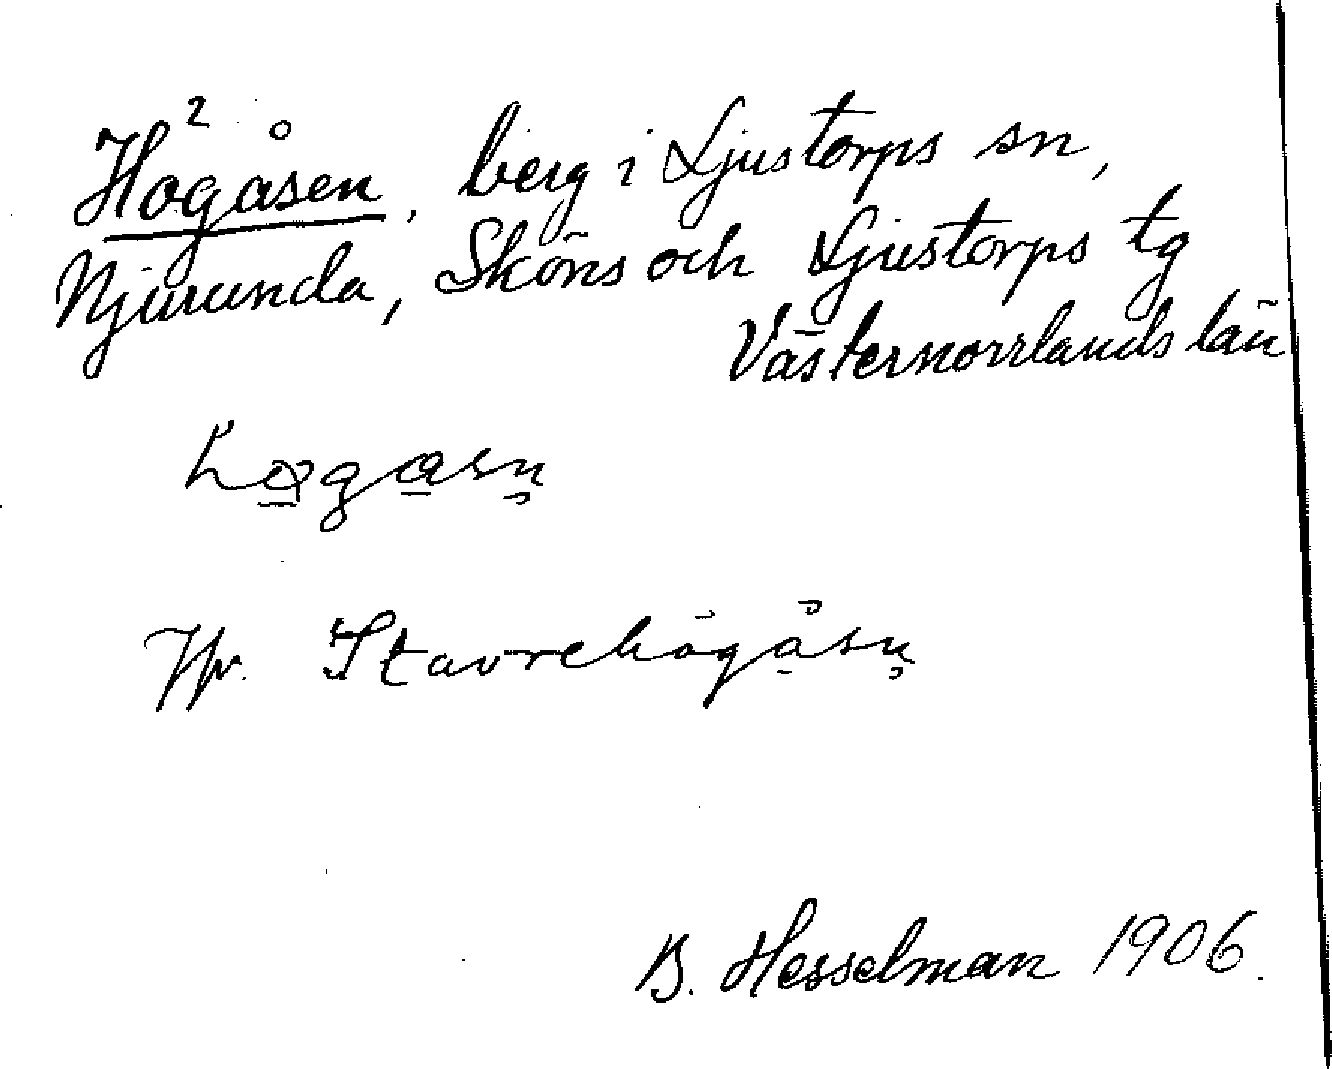 Högåsen, berg i Ljustorps sn,
Njurunda, Sköns och Ljustorps tg
Västernorrlands län
Jfr. Stavrehögåsn̥
B. Hesselman 1906.